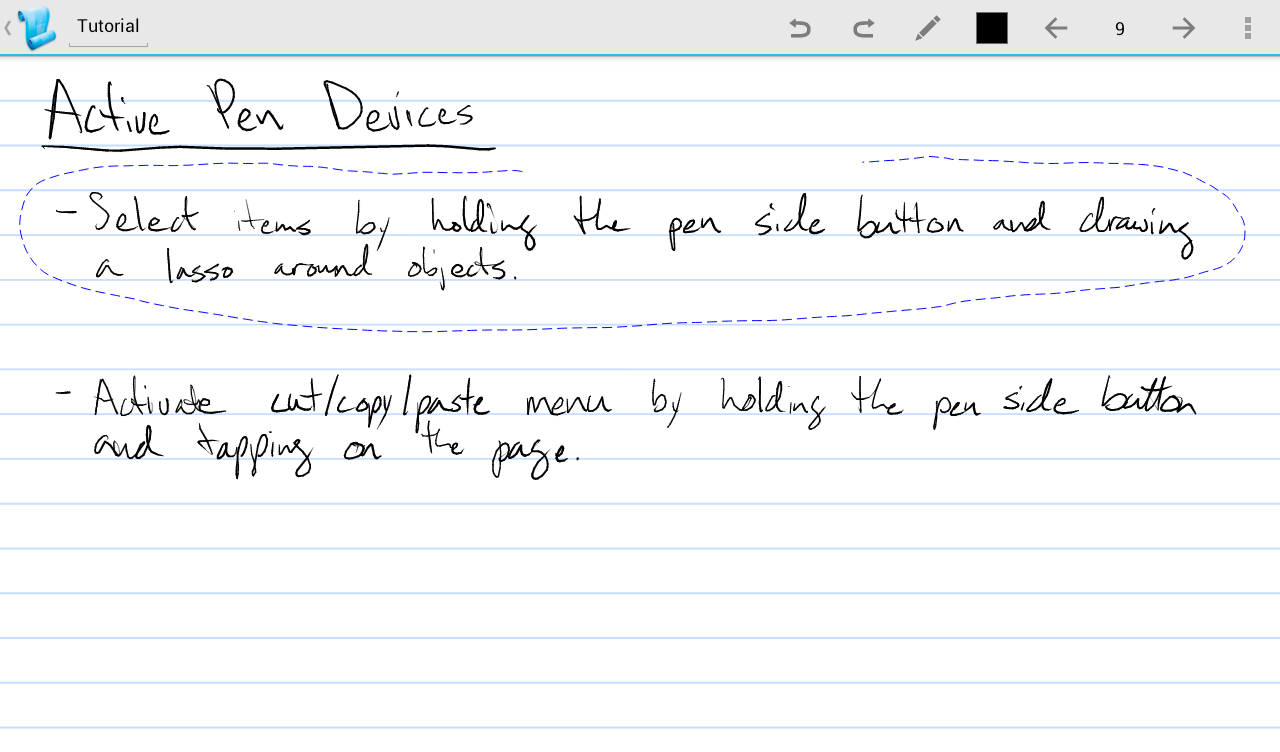 Tutorial
9
Active Pen Devices
- Select items by holding the pen side button and drawing
a lasso around objects.
- Activate cut/copy/paste menu by holding the pen side button
and tapping on the page.